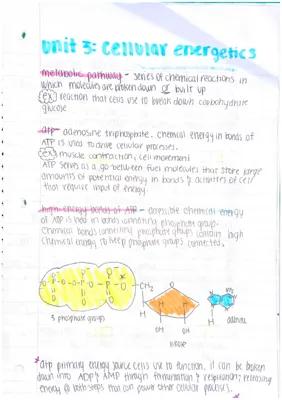 unit 3: cellular energetics
metabolic pathway - series of chemical reactions in
which molecules are broken down or built up
(ex) reaction that cells use to break down carbohydrate
glucose
atp - adenosine triphosphate. chemical energy in bonds of
ATP is used to drive cellular processes.
(ex) muscle contraction, cell movement
ATP serves as a go between fuel molecules that store large
amounts of potential energy in bonds & activities of cell
that require input of energy.
high energy bonds of ATP - accessible chemical energy
of ATP is held in bonds connecting phosphate group.
chemical bonds connecting phosphate groups contain high
chemical energy to keep phosphate groups connected.
CH2
NH2
3 phosphate groups
H
OH
OH
ribose
adenine
*atp primary energy source cells use to function. it can be broken
down into ADP & AMP through fermentation & respiration, releasing
energy @ both steps that can power other cellular processes.